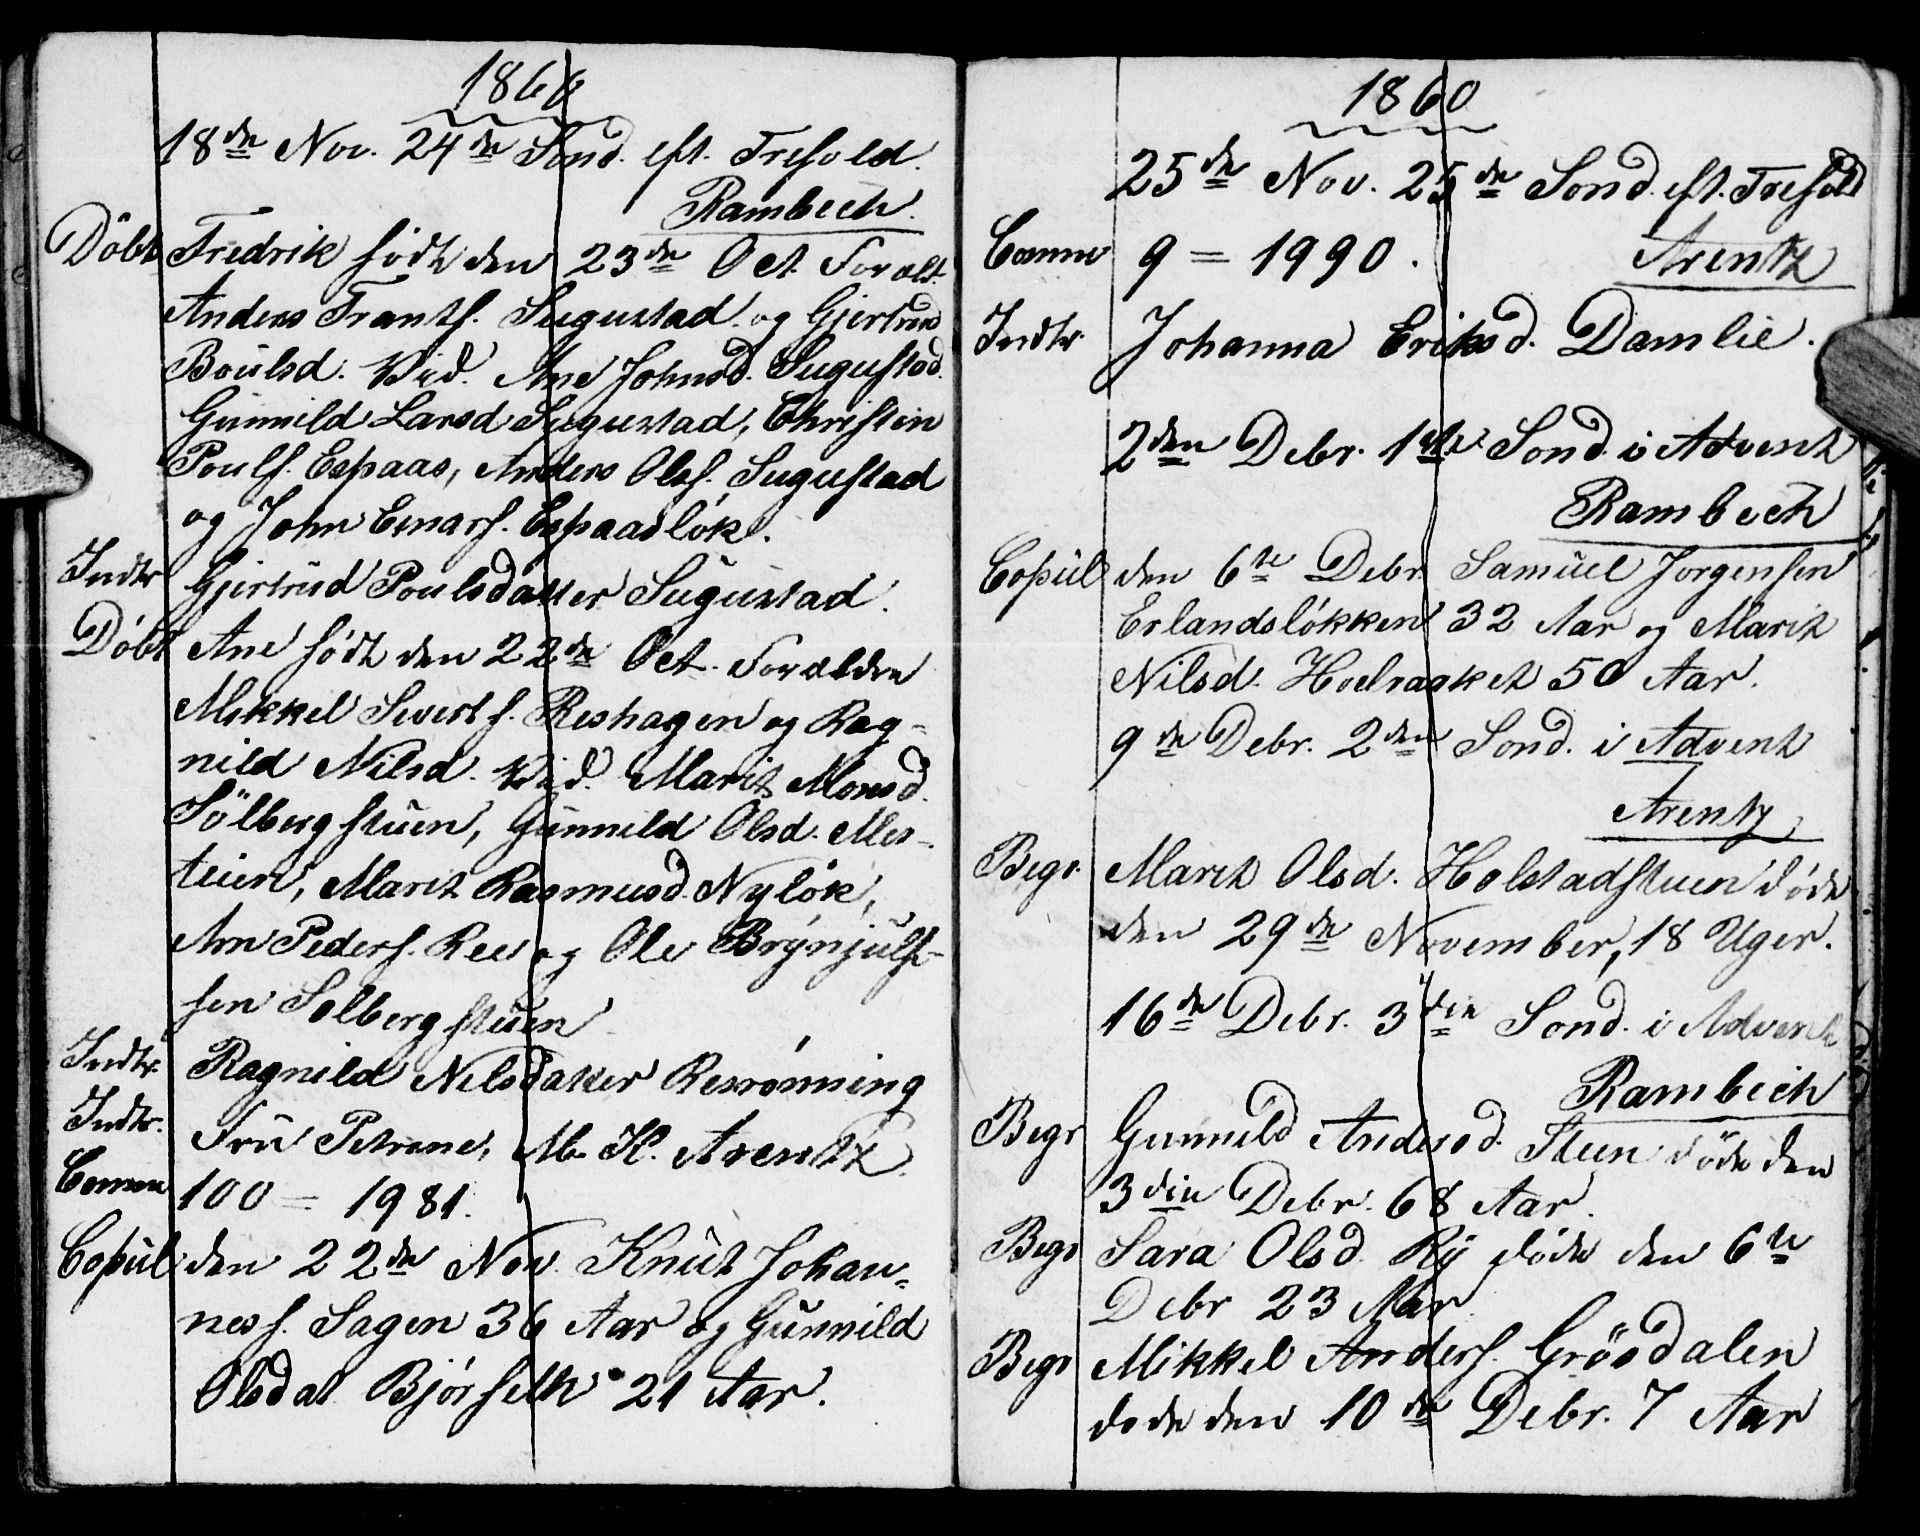 1860
18de Nov. 24de Sønd. eft. Trefold.
Rambech.
Döbt Fredrik födt den 23de Oct. Forælt.
Anders Frantsf. Sugustad. og Gjertrud
Poulsd. Vid. Ane Johnsd. Sugustad.
Gunnild Larsd Sugustad, Christen
Poulf. Espaas, Anders Olsf. Sugustad
og John Einarf. Espaasløk.
Indtr Gjertrud Poulsdatter Sugustad.
Døbt Ane födt den 22de Oct. Forældre
Mikkel Sivertf. Reshagen og Rag-
nild Nilsd. Vid. Marit Monsd.
Sölbergstuen, Gunnild Olsd. Mes-
teien, Marit Rasmusd. Nyløk,
Arn Pedersf. Ree og Ole Brynjulf-
sen Solbergstuen
Indtr. Ragnild Nilsdatter Resrønning
Indtr. Fru Petrine, M. K. Arentz.
Comm 100 = 1981.
Copul den 22de Nov. Knut Johan-
nesf. Sagen 36 Aar og Gunnild
Olsdat Bjørseth 21 Aar.
1860
25de Nov. 25de Sond. eft. Trefold
Comm 9 = 1990. Arentz
Indtr. Johanna Eriksd. Damlie.
2den Debr. 1ste Sond. i Advent
Rambech
Copul den 6te Debr Samuel Jorgensen
Erlandsløkken 32 Aar og Marit
Nilsd. Hoelsaaket 50 Aar.
9de Debr. 2den Sond. i Advent
Arentz
Begr. Marit Olsd. Holstadstuen døde
den 29de November, 18 Uger.
16de Debr. 3die Sond. i Advent
Rambech
Begr Gunnild Andersd. Steen döde den
3die Debr. 68 Aar.
Begr Sara Olsd. Ry døde den 6te
Debr 23 Aar
Begr Mikkel Andersf. Grösdalen
døde den 10de Debr. 7 Aar